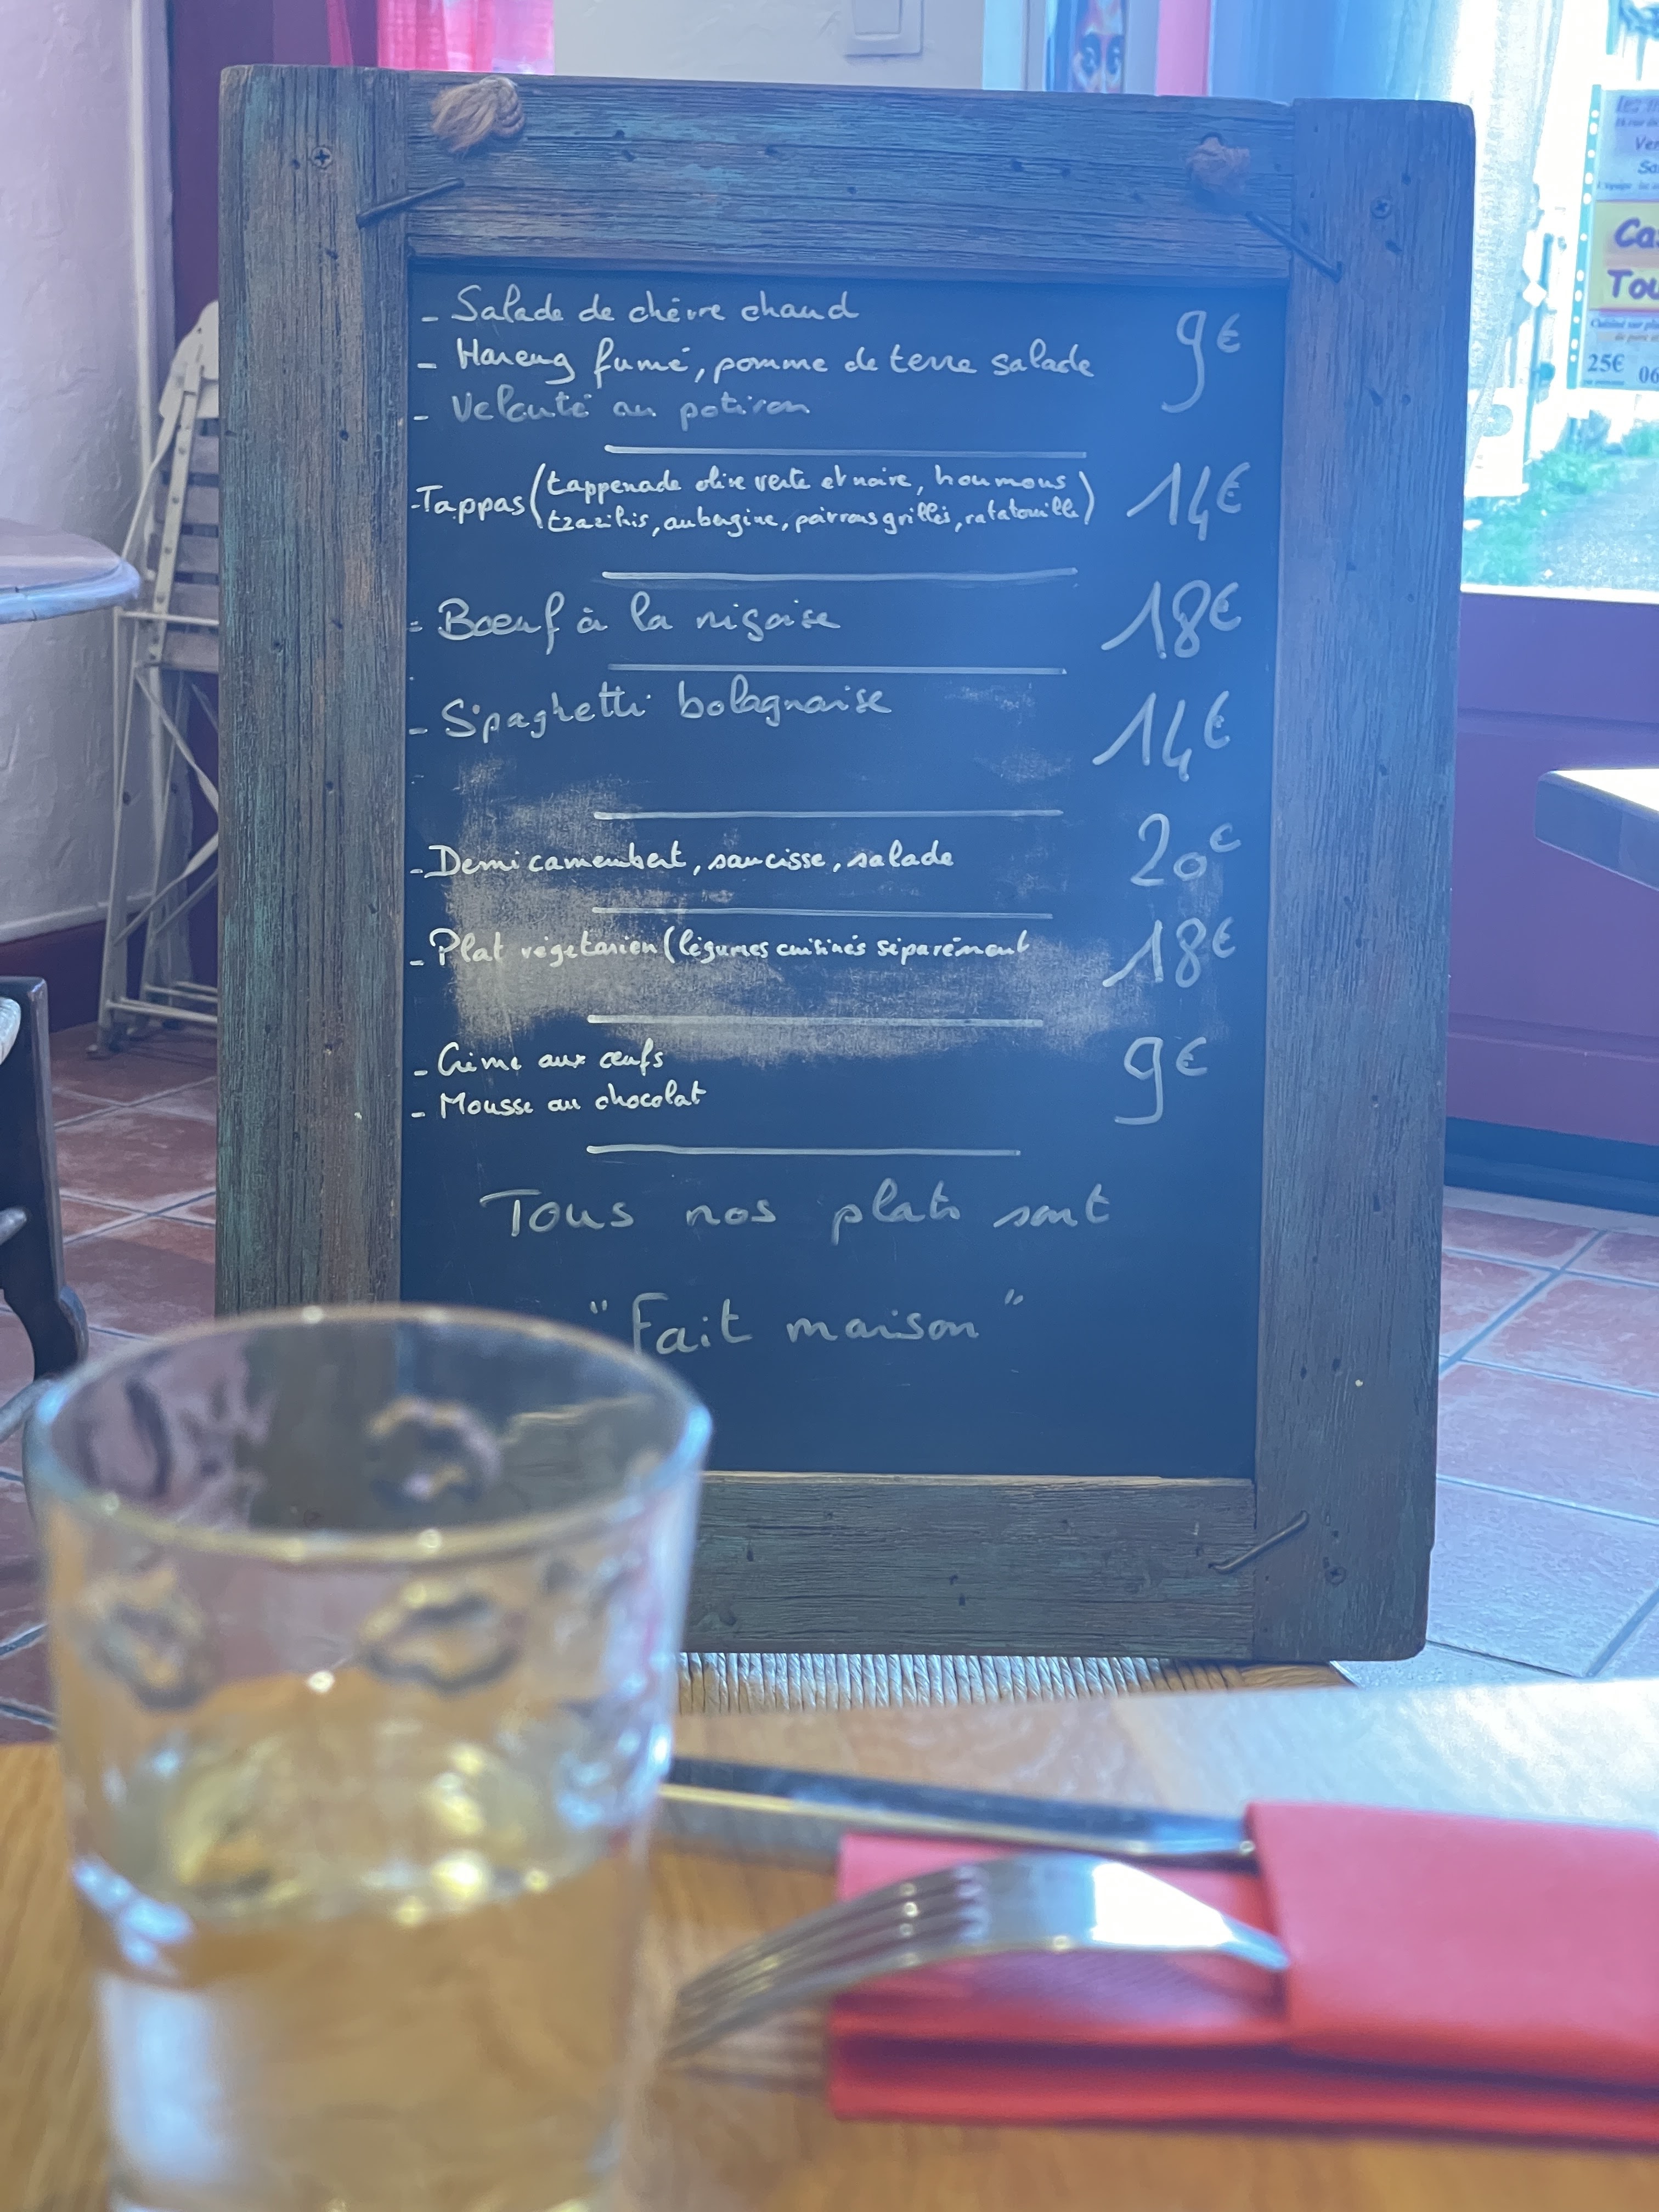 - Salade de chèvre chaud
- Hareng fumé, pomme de terre salade 9€
- Velouté au potiron
-Tappas (tappenade olive verte et noire, houmous
tzazikis, aubergine, poivrons grillés, ratatouille) 14€
- Bœuf à la niçoise 18€
- Spaghetti bolognaise 14€
- Demi camembert, saucisse, salade 20€
- Plat végétarien (légumes cuisinés séparément 18€
- Crème aux œufs 9€
- Mousse au chocolat
Tous nos plats sont
"Fait maison"
Ca
Tou
25€
06